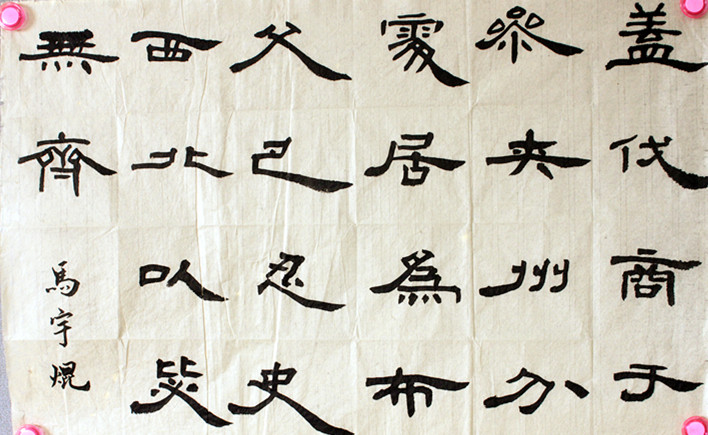 盖伐商于
叅夾州分
處居為布
父已忍史
西北以
無齊
馬宇焜